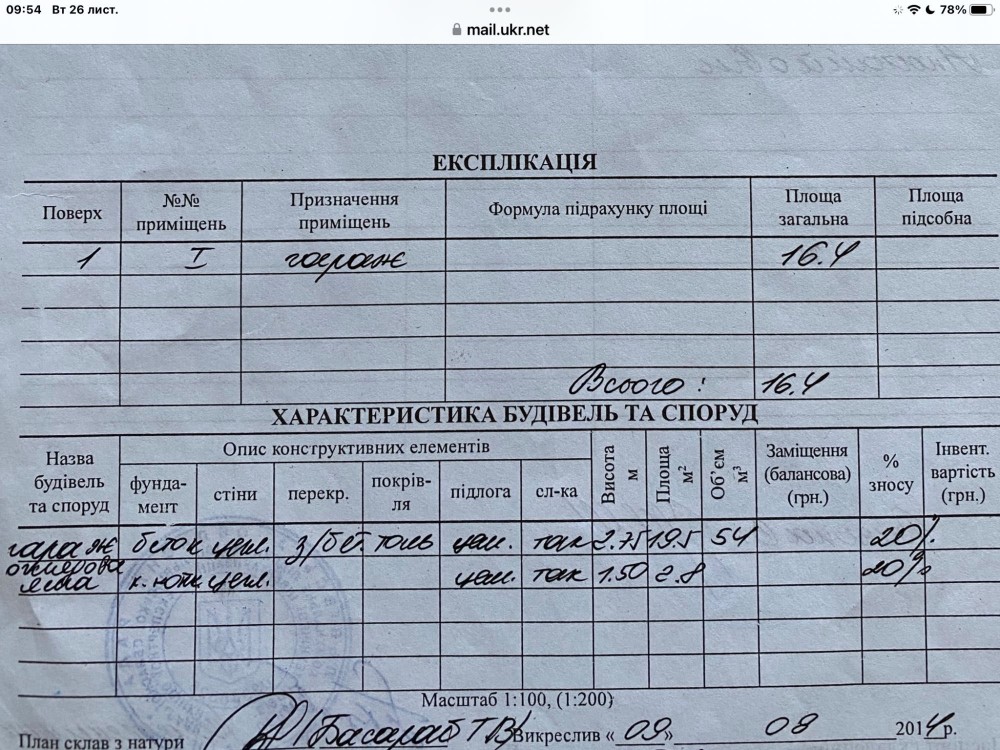 09:54 Вт 26 лист. 78%
mail.ukr.net
ЕКСПЛІКАЦІЯ
Поверх №№ приміщень Призначення приміщень Формула підрахунку площі Площа загальна Площа підсобна
1 I гараж 16.4
Всього: 16.4
ХАРАКТЕРИСТИКА БУДІВЕЛЬ ТА СПОРУД
Назва будівель та споруд Опис конструктивних елементів Висота м Площа м² Об’єм м³ Заміщення (балансова) (грн.) % зносу Інвент. вартість (грн.)
фунда-мент стіни перекр. покрів-ля підлога сл-ка
гараж бток цегл. з/бет. толь цем. так 2.75 19.5 54 20%
оглядова яма цегл. цем. так 1.50 2.8 20%
Масштаб 1:100, (1:200)
План склав з натури /Басараб Т.В/ Викреслив « 09 » 08 2014 р.